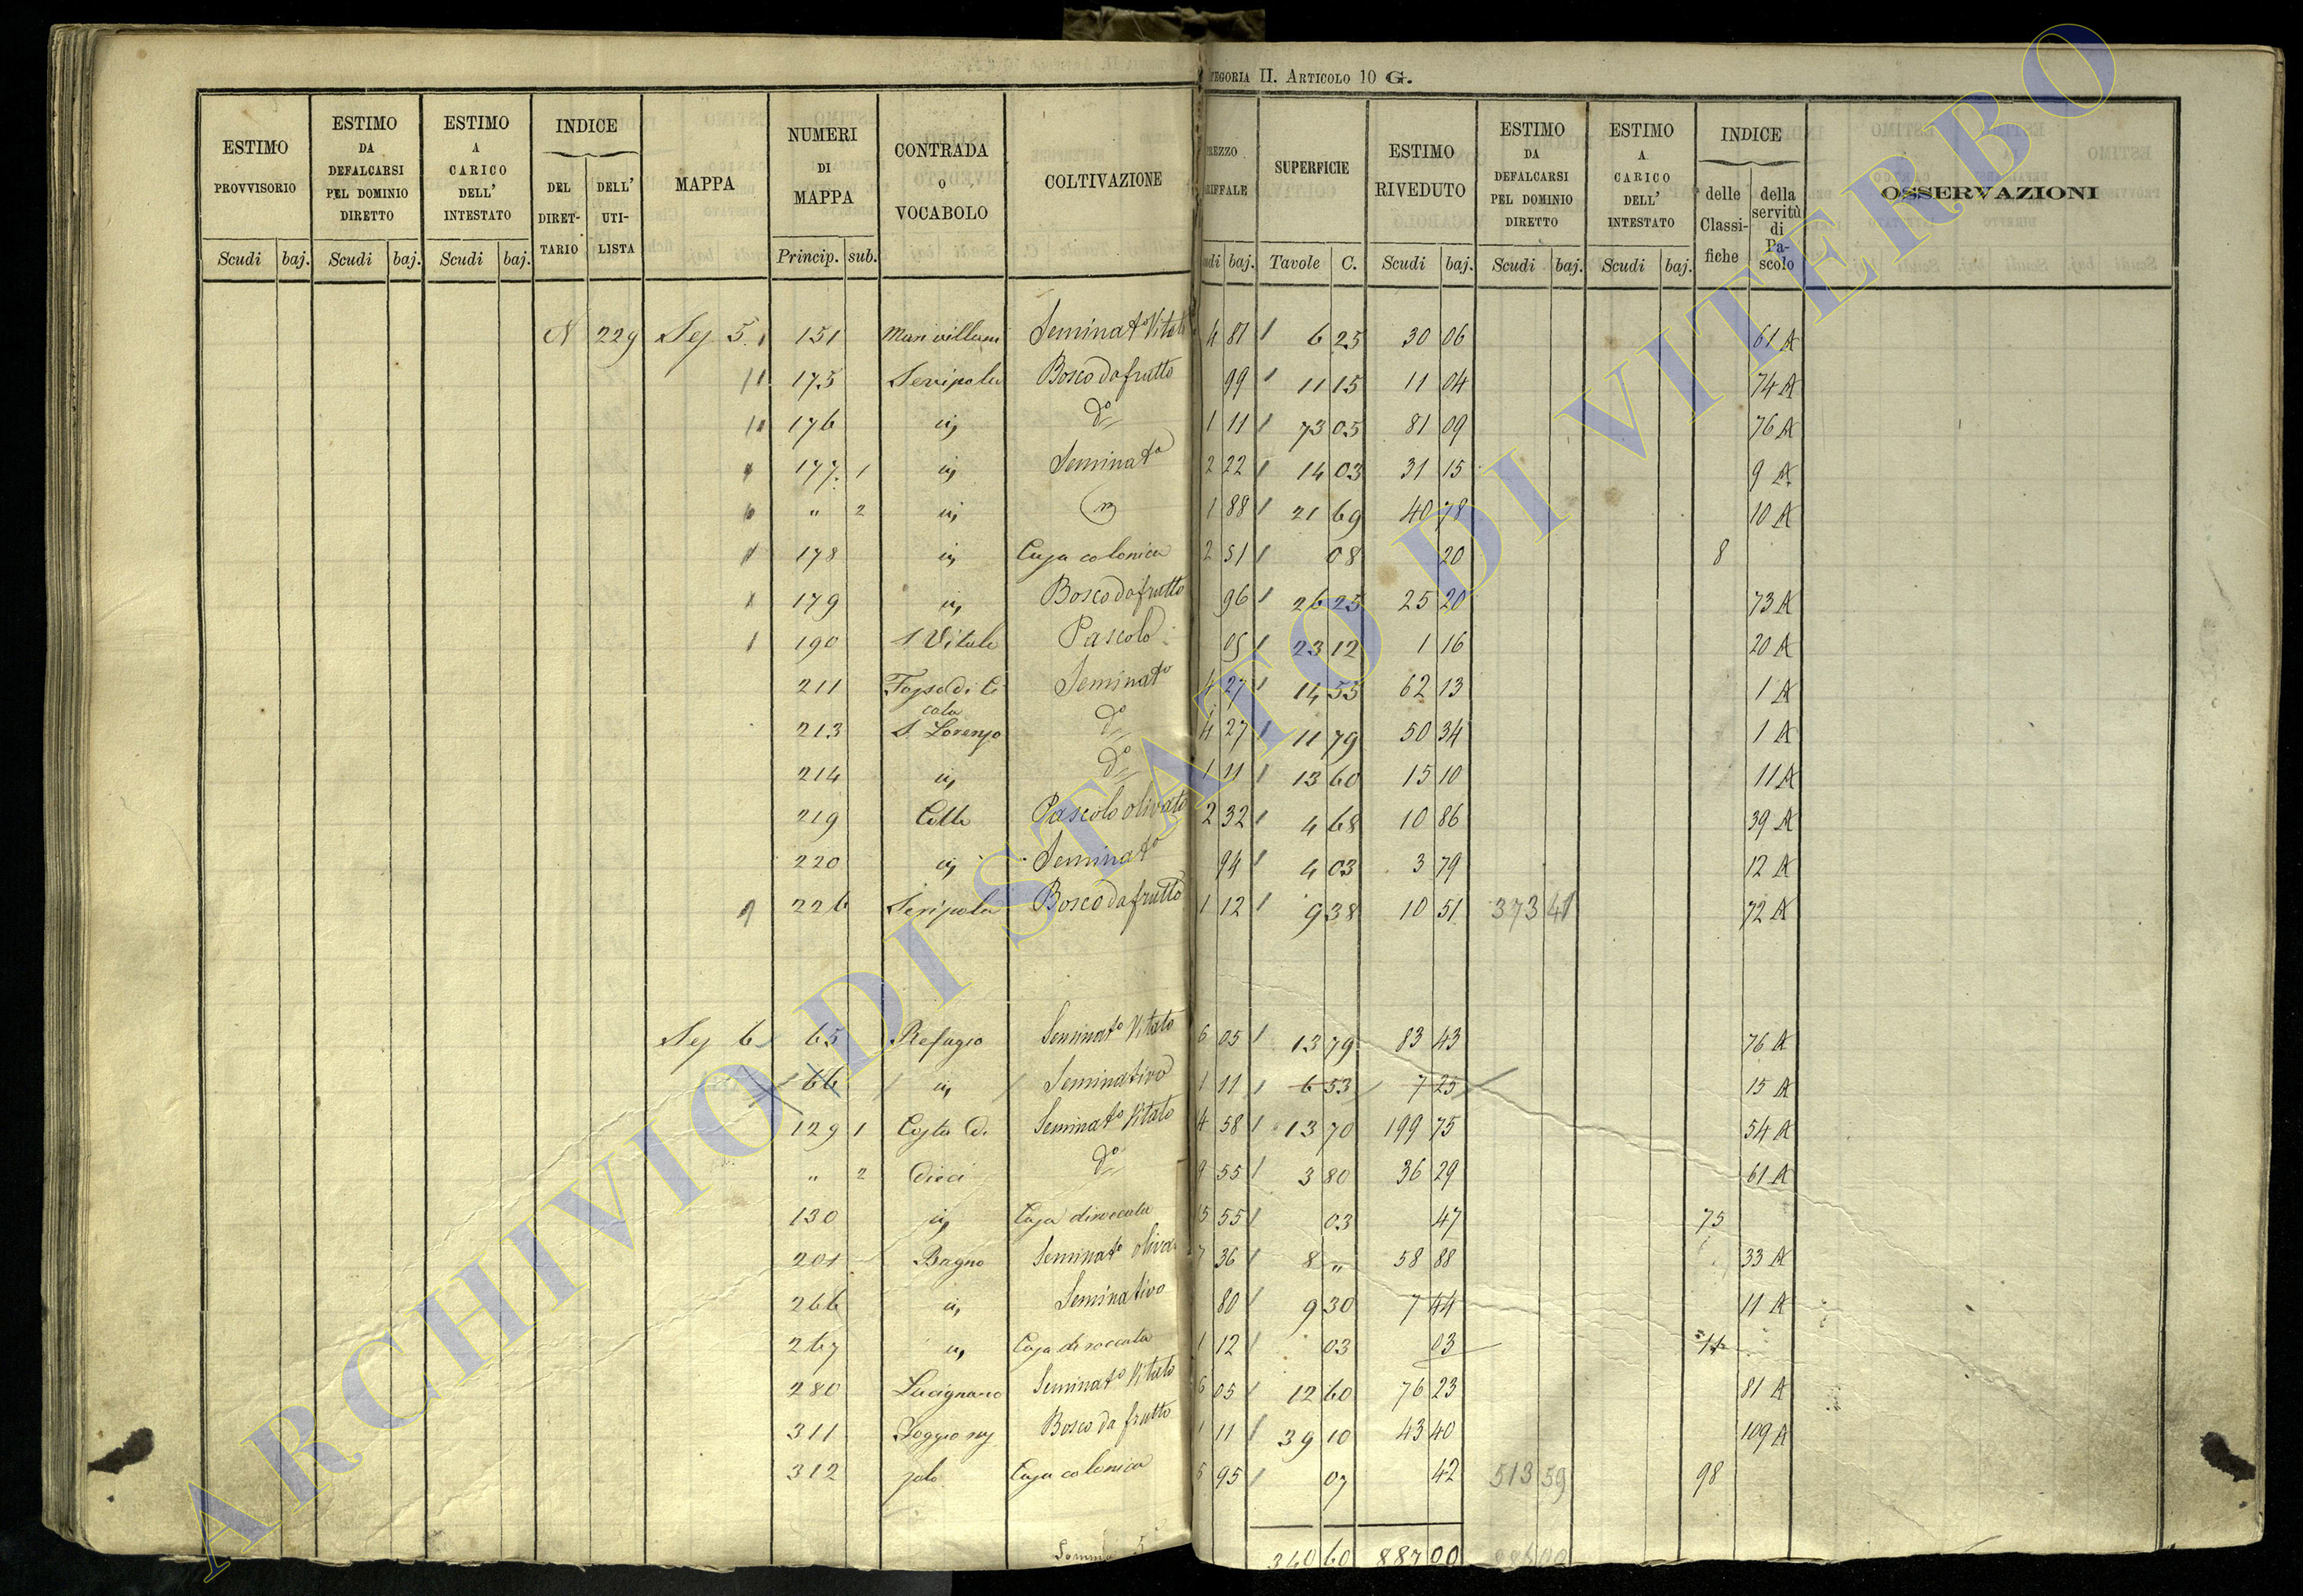 CATEGORIA II. ARTICOLO 10 G.
ESTIMO PROVVISORIO Scudi baj.
ESTIMO DA DEFALCARSI PEL DOMINIO DIRETTO Scudi baj.
ESTIMO A CARICO DELL' INTESTATO Scudi baj.
INDICE DEL DIRETTARIO DELL' UTILISTA
MAPPA
NUMERI DI MAPPA Princip. sub.
CONTRADA O VOCABOLO
COLTIVAZIONE
PREZZO TARIFFALE Scudi baj.
SUPERFICIE Tavole C.
ESTIMO RIVEDUTO Scudi baj.
ESTIMO DA DEFALCARSI PEL DOMINIO DIRETTO Scudi baj.
ESTIMO A CARICO DELL' INTESTATO Scudi baj.
INDICE delle Classifiche della servitù di Pascolo
OSSERVAZIONI
N 229 Sez 5. 151 Seminato Vitato 4 81 6 25 30 06 61 A
175 Seripola Bosco da frutto 99 11 15 11 04 74 A
176 id do 1 11 73 05 81 09 76 A
177 1 id Seminato 2 22 14 03 31 15 9 A
" 2 id 1 88 21 69 40 78 10 A
178 id Casa colonica 2 51 08 20 8
179 id Bosco da frutto 96 26 25 25 20 73 A
190 S Vitale Pascolo 05 23 12 1 16 20 A
211 Fosso di Ci
cala Seminato 4 27 14 55 62 13 1 A
213 S. Lorenzo do 4 27 11 79 50 34 1 A
214 id do 1 11 13 60 15 10 11 A
219 Colle Pascolo olivato 2 32 4 68 10 86 39 A
220 id Seminato 94 4 03 3 79 12 A
226 Seripola Bosco da frutto 1 12 9 38 10 51 373 41 72 A
Sez 6 65 Refugio Seminato Vitato 6 05 13 79 83 43 76 A
66 id Seminativo 1 11 6 53 7 25 15 A
129 1 Costa di Seminato Vitato 4 58 13 70 199 75 54 A
" 2 Dieci do 9 55 3 80 36 29 61 A
130 id Casa diroccata 15 55 03 47 75
201 Bagno Seminato olivato 7 36 8 " 58 88 33 A
266 id Seminativo 80 9 30 7 44 11 A
267 id Casa diroccata 1 12 03 03
280 Lucignano Seminato Vitato 6 05 12 60 76 23 81 A
311 Bosco da frutto 1 11 39 10 43 40 109 A
312 Casa colonica 5 95 07 42 513 59 98
Somma 340 60 887 00
ARCHIVIO DI STATO DI VITERBO